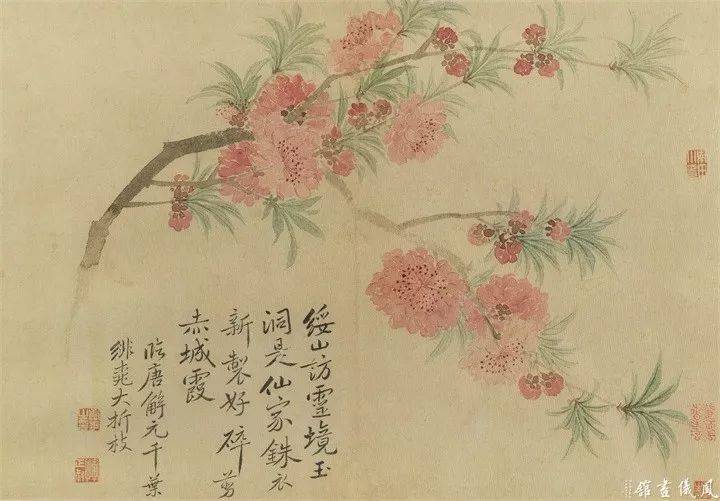 綏山訪靈境玉
洞是仙家銖衣
新製好碎剪
赤城霞
臨唐解元千葉
緋桃大折枝
風儀畫館